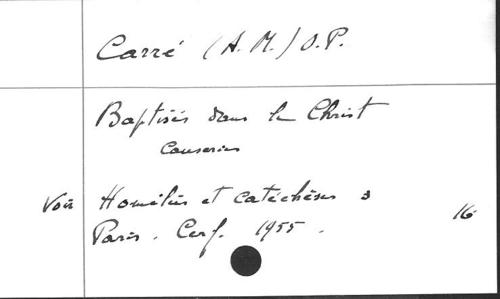 Carré (A. M.) O.P.
Baptisés dans le Christ
Causeries
Voir Homélies et catéchèses 3
16
Paris. Cerf. 1955.